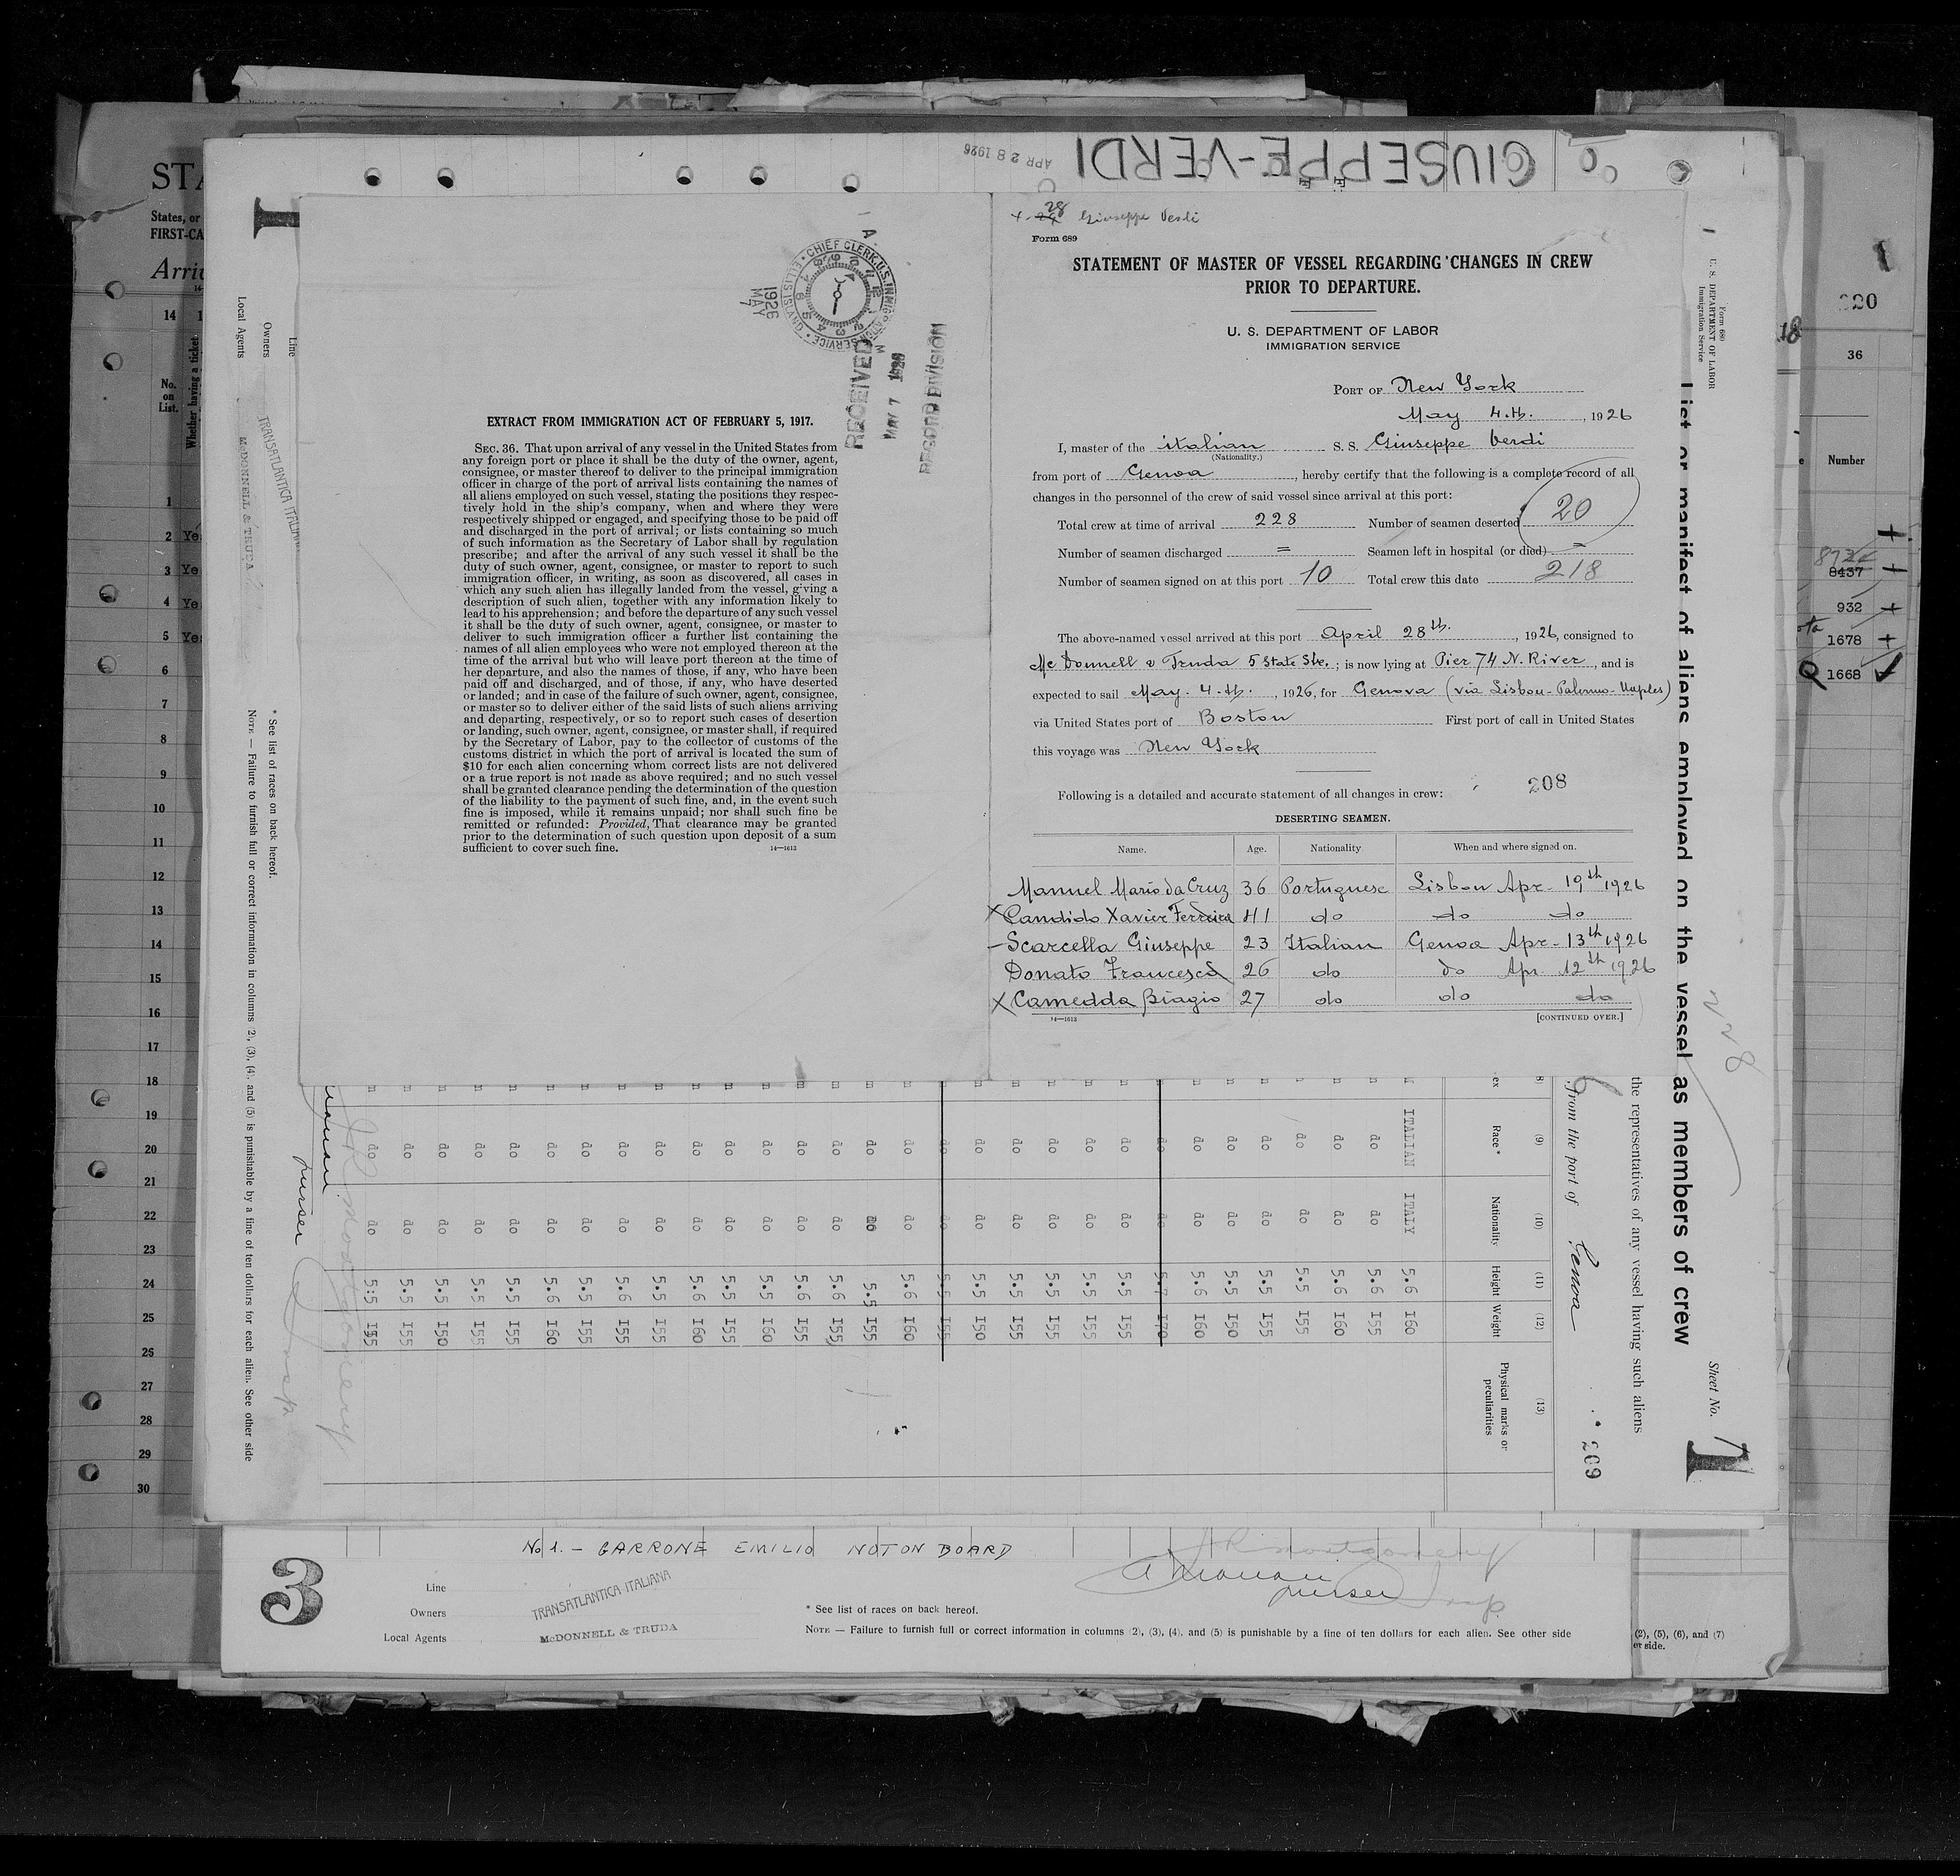 GIUSEPPE-VERDI
APR 28 1926
4-28 Giuseppe Verdi
Form 689
STATEMENT OF MASTER OF VESSEL REGARDING CHANGES IN CREW
PRIOR TO DEPARTURE.
U. S. DEPARTMENT OF LABOR
IMMIGRATION SERVICE
PORT OF New York
May 4.th. , 1926
I, master of the italian S. S. Giuseppe Verdi
(Nationality.)
from port of Genoa , hereby certify that the following is a complete record of all
changes in the personnel of the crew of said vessel since arrival at this port:
Total crew at time of arrival 228 Number of seamen deserted 20
Number of seamen discharged = Seamen left in hospital (or died) =
Number of seamen signed on at this port 10 Total crew this date 218
The above-named vessel arrived at this port April 28th. , 1926, consigned to
Mc Donnell & Truda 5 State Str. ; is now lying at Pier 74 N. River , and is
expected to sail May. 4.th. , 1926, for Genova (via Lisbon-Palermo-Naples)
via United States port of Boston First port of call in United States
this voyage was New York
208
Following is a detailed and accurate statement of all changes in crew:
DESERTING SEAMEN.
Name. Age. Nationality When and where signed on.
Manuel Mario da Cruz 36 Portuguese Lisbon Apr- 19th 1926
X Candido Xavier Ferreira 41 do do do
- Scarcella Giuseppe 23 Italian Genoa Apr- 13th 1926
Donato Francesco 26 do do Apr- 12th 1926
X Camedda Biagio 27 do do do
14—1612 [CONTINUED OVER.]
CHIEF CLERK, U.S. IMMIGRATION SERVICE • ELLIS ISLAND •
1926
MAY
7
RECEIVED
MAY 7 1926
RECORD DIVISION
EXTRACT FROM IMMIGRATION ACT OF FEBRUARY 5, 1917.
SEC. 36. That upon arrival of any vessel in the United States from
any foreign port or place it shall be the duty of the owner, agent,
consignee, or master thereof to deliver to the principal immigration
officer in charge of the port of arrival lists containing the names of
all aliens employed on such vessel, stating the positions they respec-
tively hold in the ship's company, when and where they were
respectively shipped or engaged, and specifying those to be paid off
and discharged in the port of arrival; or lists containing so much
of such information as the Secretary of Labor shall by regulation
prescribe; and after the arrival of any such vessel it shall be the
duty of such owner, agent, consignee, or master to report to such
immigration officer, in writing, as soon as discovered, all cases in
which any such alien has illegally landed from the vessel, giving a
description of such alien, together with any information likely to
lead to his apprehension; and before the departure of any such vessel
it shall be the duty of such owner, agent, consignee, or master to
deliver to such immigration officer a further list containing the
names of all alien employees who were not employed thereon at the
time of the arrival but who will leave port thereon at the time of
her departure, and also the names of those, if any, who have been
paid off and discharged, and of those, if any, who have deserted
or landed; and in case of the failure of such owner, agent, consignee,
or master so to deliver either of the said lists of such aliens arriving
and departing, respectively, or so to report such cases of desertion
or landing, such owner, agent, consignee, or master shall, if required
by the Secretary of Labor, pay to the collector of customs of the
customs district in which the port of arrival is located the sum of
$10 for each alien concerning whom correct lists are not delivered
or a true report is not made as above required; and no such vessel
shall be granted clearance pending the determination of the question
of the liability to the payment of such fine, and, in the event such
fine is imposed, while it remains unpaid; nor shall such fine be
remitted or refunded: Provided, That clearance may be granted
prior to the determination of such question upon deposit of a sum
sufficient to cover such fine.
14—1612
Form 680
U. S. DEPARTMENT OF LABOR
Immigration Service
List or manifest of aliens employed on the vessel as members of crew
Sheet No. 1
228
the representatives of any vessel having such aliens
From the port of Genoa
209
(9) (10) (11) (12) (13)
Race* Nationality Height Weight Physical marks or
peculiarities
ITALIAN ITALY 5.6 160
do do 5.6 155
do do 5.6 160
do do 5.5 155
do do 5.5 155
do do 5.5 150
do do 5.6 160
do do 5.7 170
do do 5.5 155
do do 5.5 155
do do 5.5 155
do do 5.5 155
do do 5.5 150
do do 5.5 155
do do 5.6 160
do do 5.5 155
do do 5.6 155
do do 5.6 155
do do 5.5 160
do do 5.5 155
do do 5.6 160
do do 5.5 155
do do 5.6 155
do do 5.5 155
do do 5.6 160
do do 5.5 155
do do 5.5 155
do do 5.5 150
do do 5.5 155
do do 5:5 155
purser
Line
Owners
Local Agents
TRANSATLANTICA ITALIANA
McDONNELL & TRUDA
* See list of races on back hereof.
NOTE — Failure to furnish full or correct information in columns (2), (3), (4), and (5) is punishable by a fine of ten dollars for each alien. See other side
No 1. - GARRONE EMILIO NOT ON BOARD
JR Montgomery
purser Insp
3
Line
Owners
Local Agents
TRANSATLANTICA ITALIANA
McDONNELL & TRUDA
* See list of races on back hereof.
NOTE — Failure to furnish full or correct information in columns (2), (3), (4), and (5) is punishable by a fine of ten dollars for each alien. See other side
(2), (5), (6), and (7)
er side.
STA
States, or
FIRST-CA
Arri
14
No.
on
List.
Whether having a ticket
1
2 Ye
3 Ye
4 Ye
5 Ye
6
7
8
9
10
11
12
13
14
15
16
17
18
19
20
21
22
23
24
25
26
27
28
29
30
36
Number
8437
932
1678
1668